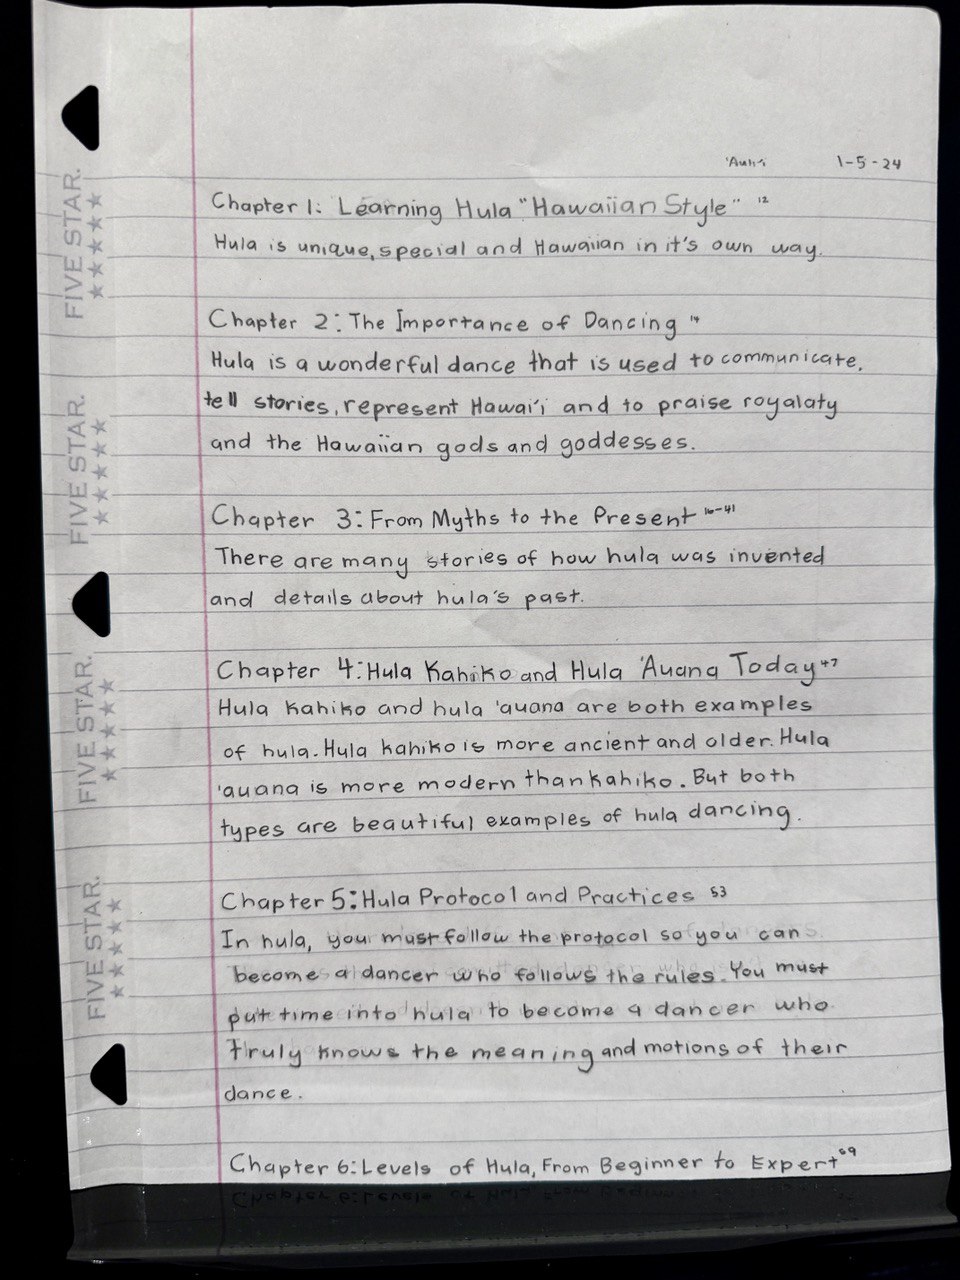 'Auli'i 1-5-24
Chapter 1: Learning Hula "Hawaiian Style" 12
Hula is unique, special and Hawaiian in it's own way.
Chapter 2: The Importance of Dancing 14
Hula is a wonderful dance that is used to communicate,
tell stories, represent Hawai'i and to praise royalaty
and the Hawaiian gods and goddesses.
Chapter 3: From Myths to the Present 16-41
There are many stories of how hula was invented
and details about hula's past.
Chapter 4: Hula Kahiko and Hula 'Auana Today 47
Hula kahiko and hula 'auana are both examples
of hula. Hula kahiko is more ancient and older. Hula
'auana is more modern than kahiko. But both
types are beautiful examples of hula dancing.
Chapter 5: Hula Protocol and Practices 53
In hula, you must follow the protocol so you can
become a dancer who follows the rules. You must
put time into hula to become a dancer who
truly knows the meaning and motions of their
dance.
Chapter 6: Levels of Hula, From Beginner to Expert
FIVE STAR.
FIVE STAR.
FIVE STAR.
FIVE STAR.